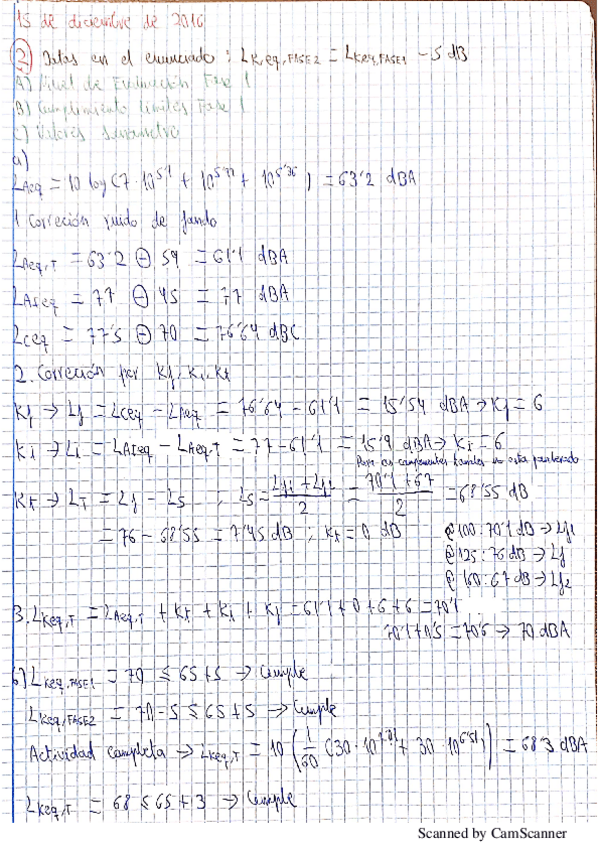 15 de diciembre de 2016
② Datos en el enunciado: LKeq,FASE2 = LKeq,FASE1 - 5 dB
A) Nivel de Evaluación Fase 1
B) Cumplimiento límites Fase 1
C) Valores
a)
LAeq = 10 log (7 · 10^5'1 + 10^5'77 + 10^5'36) = 63'2 dBA
1 Correción ruido de fondo
LAeq,T = 63'2 ⊖ 59 = 61'1 dBA
LAIeq = 77 ⊖ 45 = 77 dBA
LCeq = 77'5 ⊖ 70 = 76'64 dBC
2. Correción por Kf, Ki, Kt
Kf → Lf = LCeq - LAeq = 76'64 - 61'1 = 15'54 dBA → Kf = 6
Ki → Li = LAIeq - LAeq,T = 77 - 61'1 = 15'9 dBA → Ki = 6
Para componentes tonales no esta ponderado
Kt → Lt = Lf - Ls ; Ls = (Lf1 + Lf2)/2 = (70'1 + 67)/2 = 68'55 dB
= 76 - 68'55 = 7'45 dB ; Kt = 0 dB
@ 100: 70'1 dB → Lf1
@ 125: 76 dB → Lf
@ 160: 67 dB → Lf2
3. LKeq,T = LAeq,T + Kt + Ki + Kf = 61'1 + 0 + 6 + 6 = 70'1
70'1 + 0'5 = 70'6 → 70 dBA
b) LKeq,FASE1 = 70 ≤ 65 + 5 → Cumple
LKeq,FASE2 = 70 - 5 ≤ 65 + 5 → Cumple
Actividad completa → LKeq,T = 10 (1/60 (30 · 10^7'01 + 30 · 10^6'51)) = 68'3 dBA
LKeq,T = 68 ≤ 65 + 3 → Cumple
Scanned by CamScanner